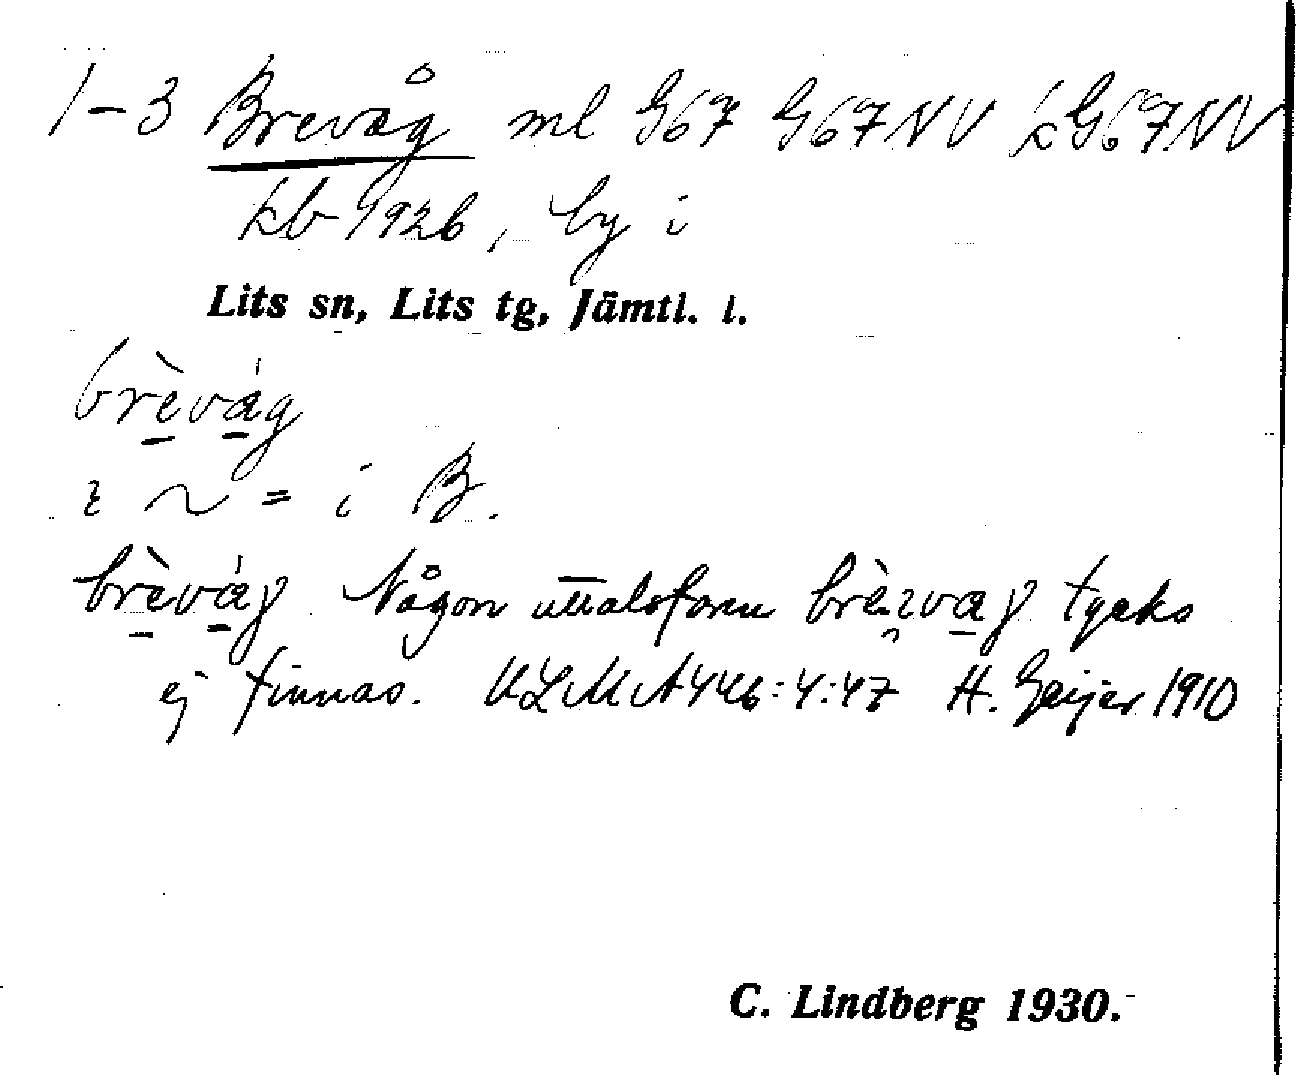 1-3 Brevåg ml G67 G67NV kG67NV
kb 1926, by i
Lits sn, Lits tg, Jämtl. l.
brèvág
i ~ = i B.
brèvág Någon uttalsform brèɪvag tycks
ej finnas. ULMA 446:4:47 H. Geijer 1910
C. Lindberg 1930.